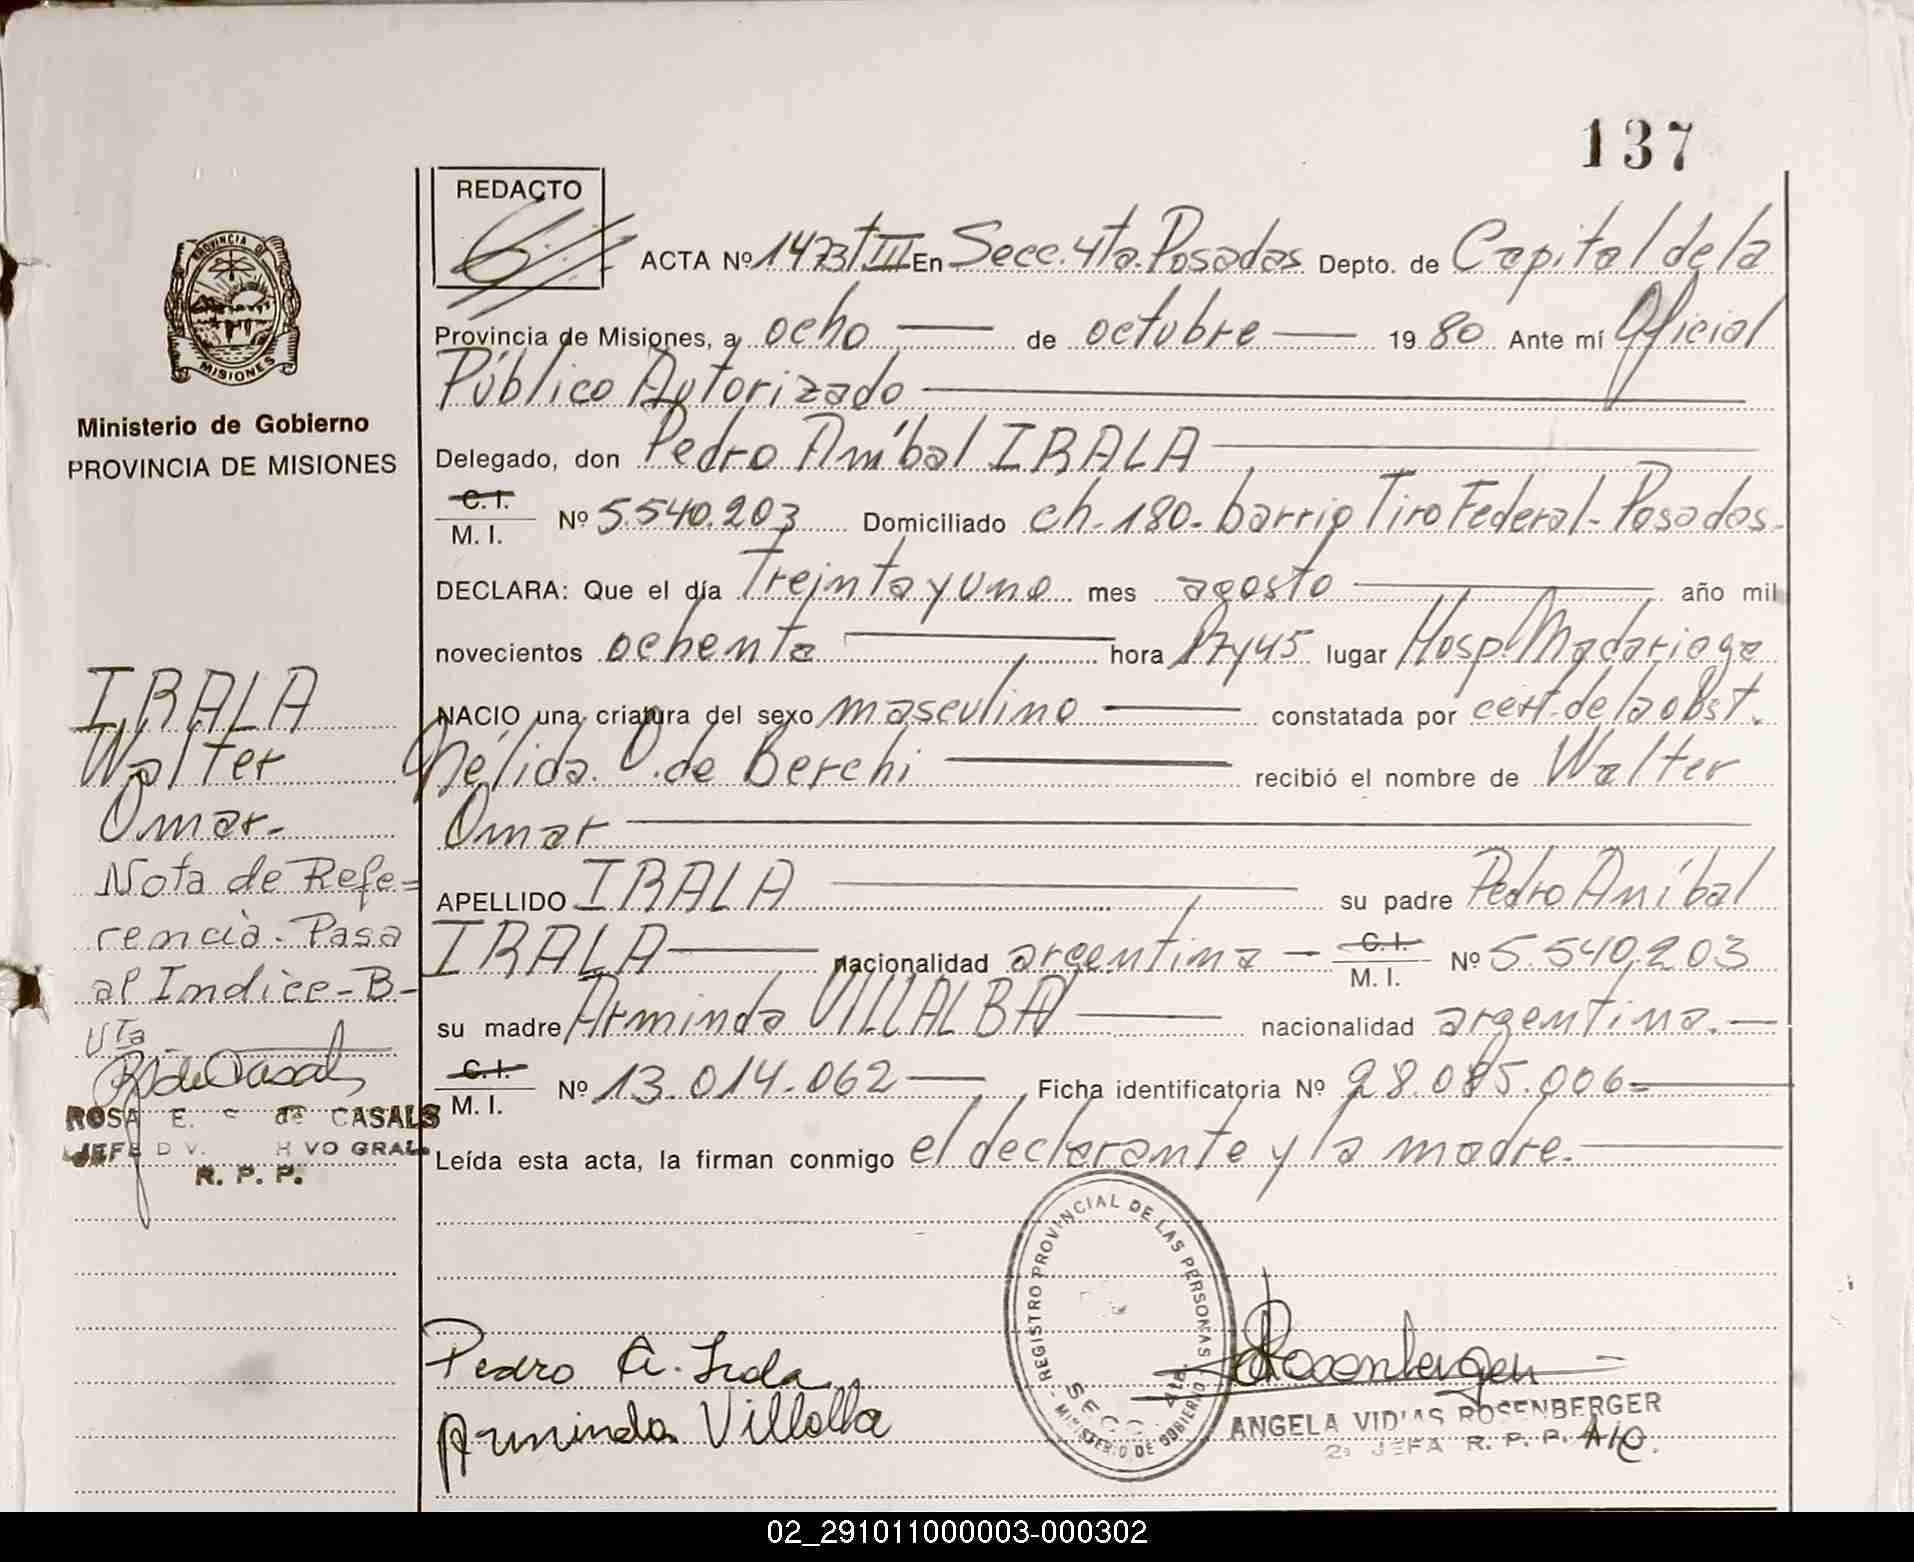 137
REDACTO
PROVINCIA DE
MISIONES
Ministerio de Gobierno
PROVINCIA DE MISIONES
ACTA Nº 1473 t III En Secc. 4ta. Posadas Depto. de Capital de la
Provincia de Misiones, a ocho de octubre 1980 Ante mí Oficial
Público Autorizado
Delegado, don Pedro Aníbal IRALA
C. I.
M. I. Nº 5.540.203 Domiciliado ch. 180. barrio Tiro Federal - Posadas.
DECLARA: Que el día Treinta y uno mes agosto año mil
novecientos ochenta hora 17y45 lugar Hosp. Madariaga
NACIO una criatura del sexo masculino constatada por cert. de la obst.
Nélida O. de Berchi recibió el nombre de Walter
Omar
APELLIDO IRALA su padre Pedro Aníbal
IRALA nacionalidad argentina - C. I.
M. I. Nº 5.540.203
su madre Arminda VILLALBA nacionalidad argentina.
C. I.
M. I. Nº 13.014.062 Ficha identificatoria Nº 28.085.006=
Leída esta acta, la firman conmigo el declarante y la madre.
IRALA
Walter
Omar.-
Nota de Refe=
rencia. Pasa
al Indice-B-
Uta
ROSA E. de CASALS
JEFE VO GRAL.
R. P. P.
REGISTRO PROVINCIAL DE LAS PERSONAS
SECC. 4ta.
MINISTERIO DE GOBIERNO
Pedro A. Irala
Arminda Villalba
Rosenberger
ANGELA VIDIAS ROSENBERGER
2ª JEFA R. P. P. A/C.
02_291011000003-000302